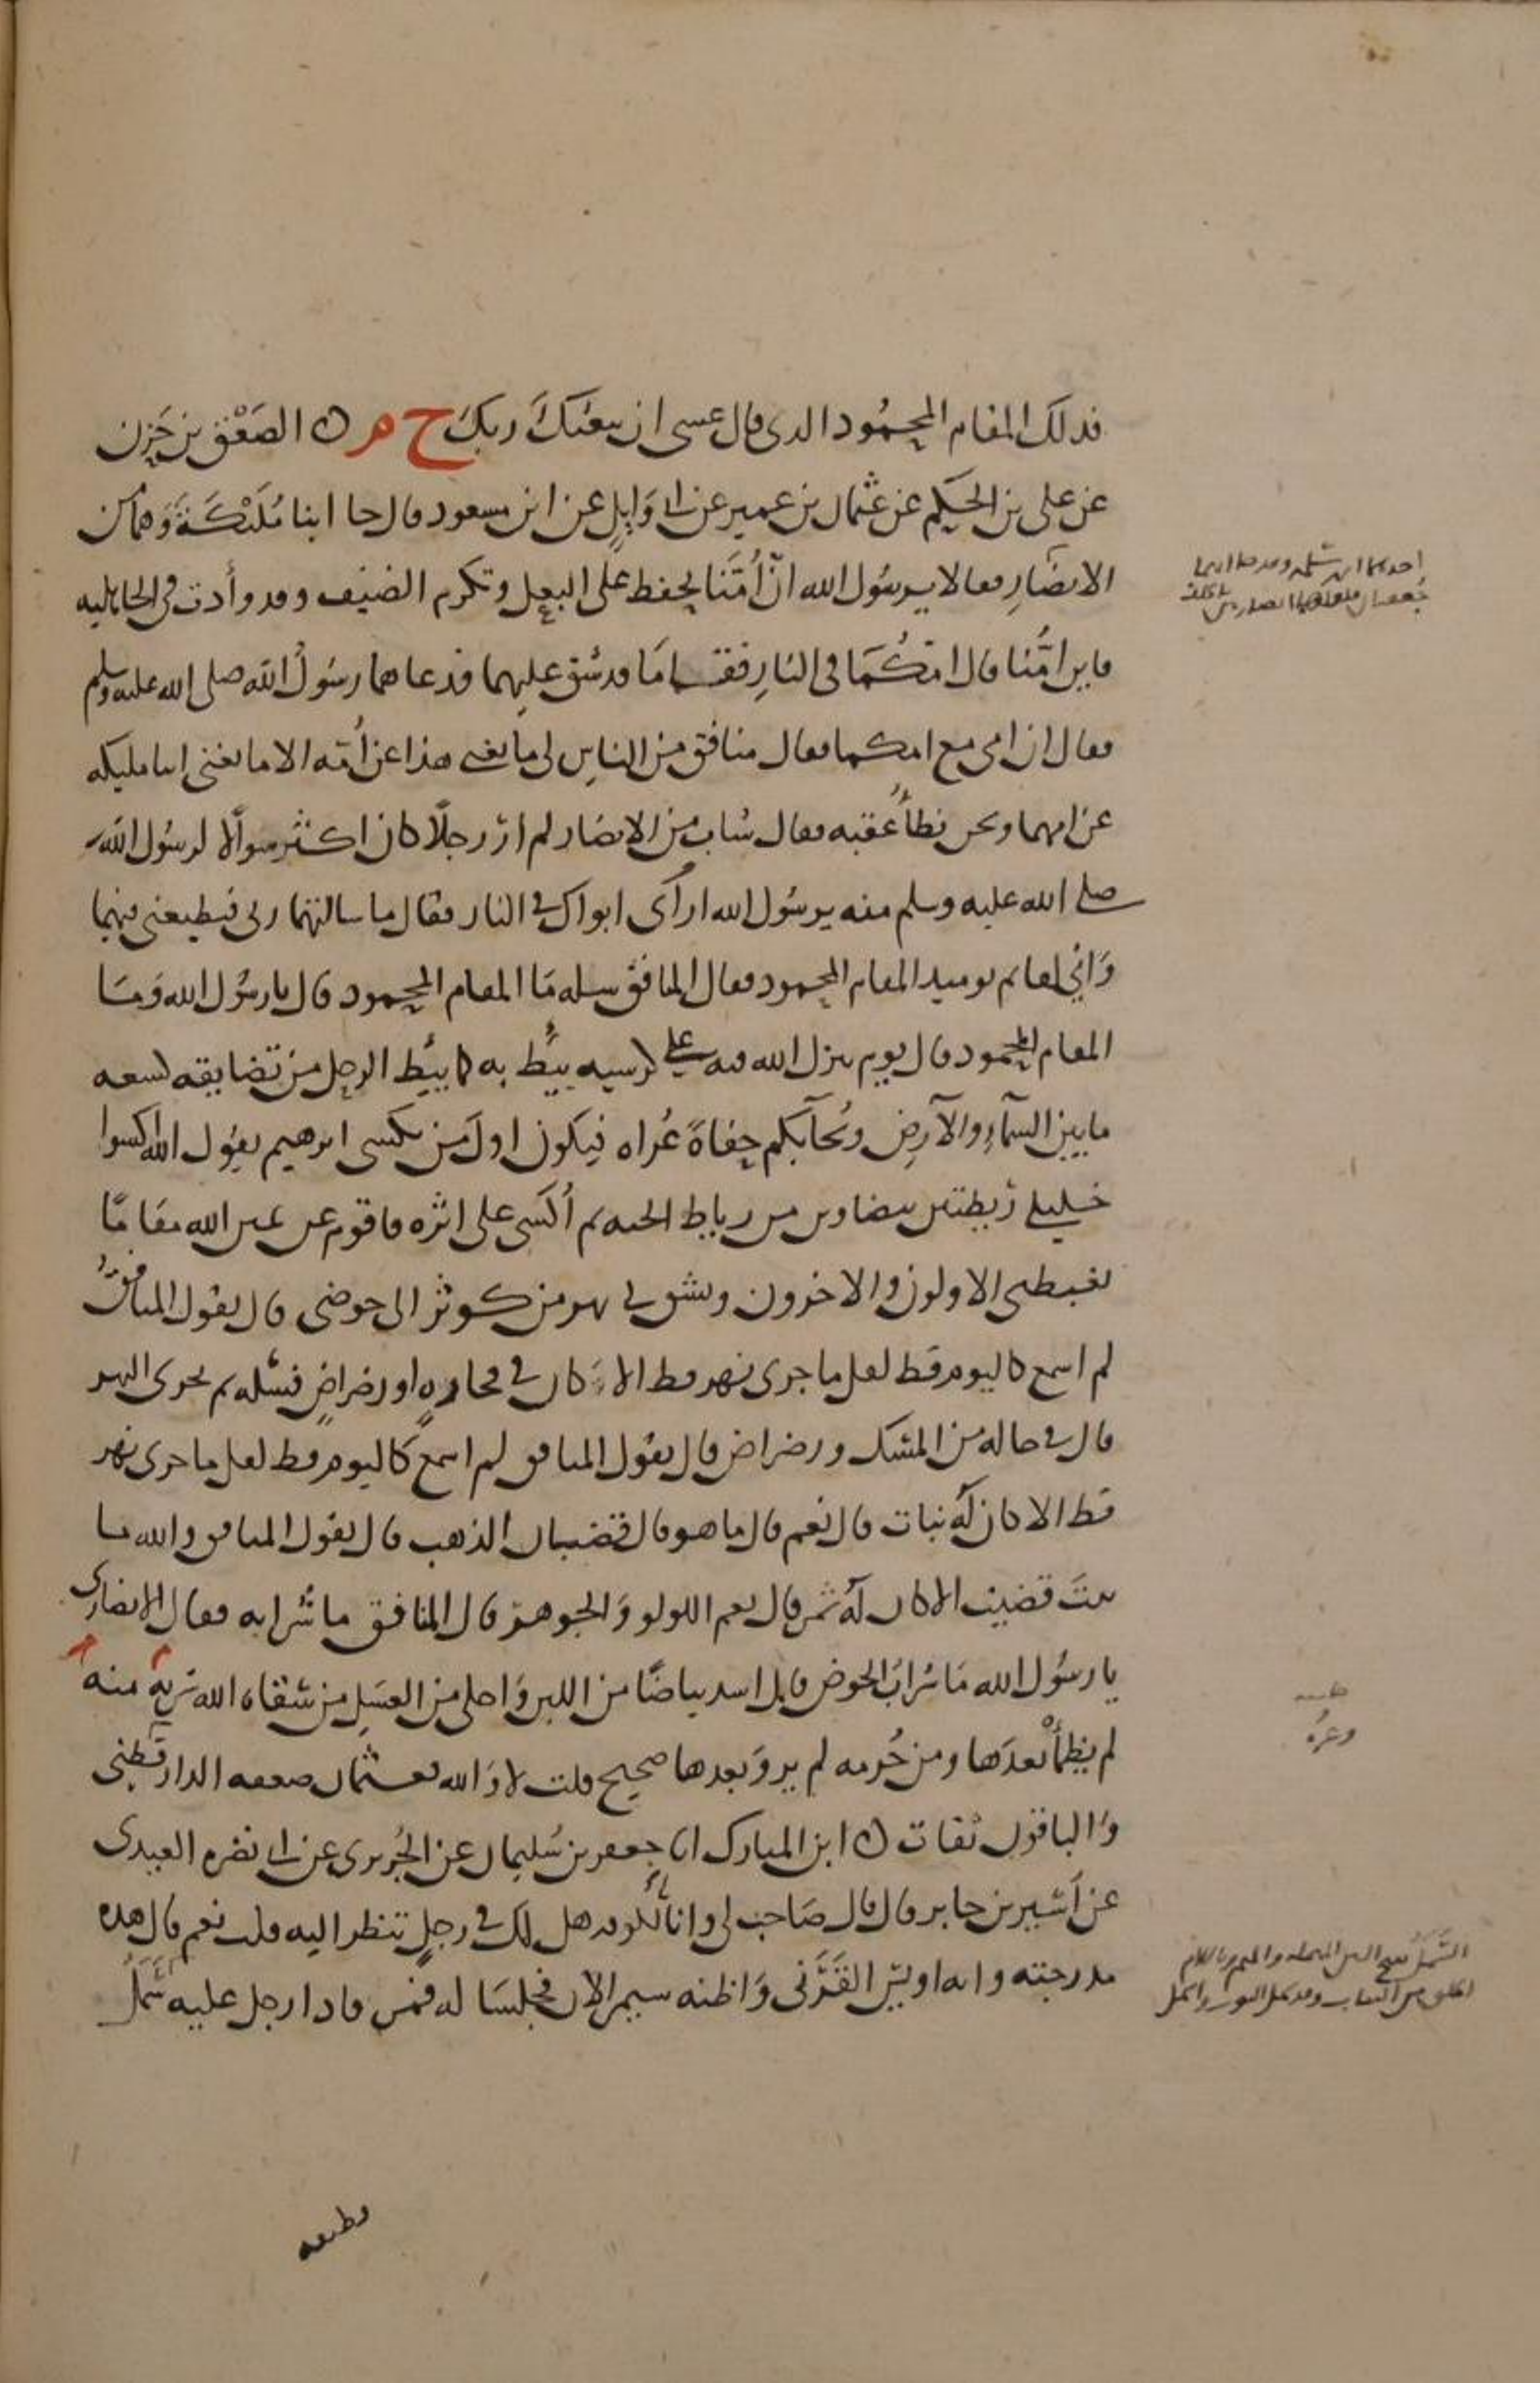 فذلك المقام المحمود الذي قال عسى ان يبعثك ربك ح م ن الصعق بن حزن
عن علي بن الحكم عن عثمان بن عمير عن ابي وايل عن ابن مسعود قال جا ابنا مليكة وهما من
الانصار فقالا يرسول الله ان أمنا تحفظ على البعل وتكرم الضيف وقد وأدت في الجاهليه
فاين امنا قال امكما في النار فقاما قد شق عليهما فدعاهما رسول الله صلى الله عليه وسلم
فقال ان امي مع امكما فقال منافق من الناس لي ما يغني هذا عن أمه الا ما يغني ابنا مليكه
عن امهما ونحن نطأ عقبه فقال شاب من الانصار لم ار رجلا كان اكثر سوالا لرسول الله
صلى الله عليه وسلم منه يرسول الله ارأى ابواك في النار فقال ما سالتهما ربي فيطيعني فيهما
واني لقايم يوميذ المقام المحمود فقال المنافق سله ما المقام المحمود قال يا رسول الله وما
المقام المحمود قال يوم ينزل الله فيه على كرسيه يئط به كما يئط الرحل من تضايقه كسعه
ما بين السماء والارض ويجآبكم حفاة عراه فيكون اول من يكسى ابرهيم يقول الله اكسوا
خليلي ريطتين بيضاوين من رياط الجنه ثم أكسى على اثره فاقوم عن يمين الله مقاما
يغبطني الاولون والاخرون ويشق لي نهر من كوثر الى حوضي قال يقول المنافق
لم اسمع كاليوم قط لعل ما جرى نهر قط الا كان في فخاره او رضراض فسله ثم يجرى النهر
قال في حاله من المسك ورضراض قال يقول المنافق لم اسمع كاليوم قط لعل ما جرى نهر
قط الا كان له نبات قال نعم قال ما هو قال قضبان الذهب قال يقول المنافق والله ما
نبت قضيب الا كان له ثمر قال نعم اللولو والجوهر قال المنافق ما شرابه فقال الانصاري
يا رسول الله ما شراب الحوض قال اشد بياضا من اللبن واحلى من العسل من سقاه الله شربة منه
لم يظمأ بعدها ومن حرمه لم يرو بعدها صحيح قلت لا والله فعثمان ضعفه الدارقطني
والباقون ثقات ن ابن المبارك انا جعفر بن سليمان عن الجريري عن ابي نضره العبدي
عن أسير بن جابر قال قال صاحب لي وانا بالكوفه هل لك في رجل تنظر اليه قلت نعم قال هذه
مدرجته وانه اويس القرني واظنه سيمر الان فجلسنا له فمر فاذا رجل عليه سمل
احدهما ابن سلمه
وغره
السمل بفتح السين المهمله والميم وباللام
الخلق من الثياب وقد سمل الثوب واسمل
قطيفه